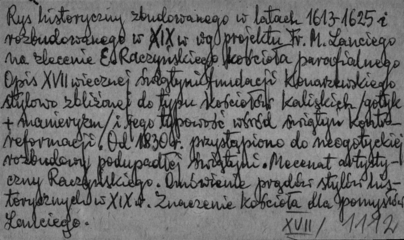 Rys historyczny zbudowanego w latach 1613-1625 i
rozbudowanego w XIX w wg projektu Fr. M. Lanciego
na zlecenie E. Raczyńskiego kościoła parafialnego
Opis XVII wiecznej świątyni fundacji Konarzewskiego
stylowo zbliżonej do typu kościołów kaliskich /gotyk
+ manieryzm/ i jego typowość wśród świątyń kontr-
reformacji. Od 1830 r. przystąpiono do neogotyckiej
rozbudowy podupadłej świątyni. Mecenat artysty-
czny Raczyńskiego. Omówienie prądów stylów his-
torycznych w XIX w. Znaczenie kościoła dla
Lanciego.
XVII / 1192